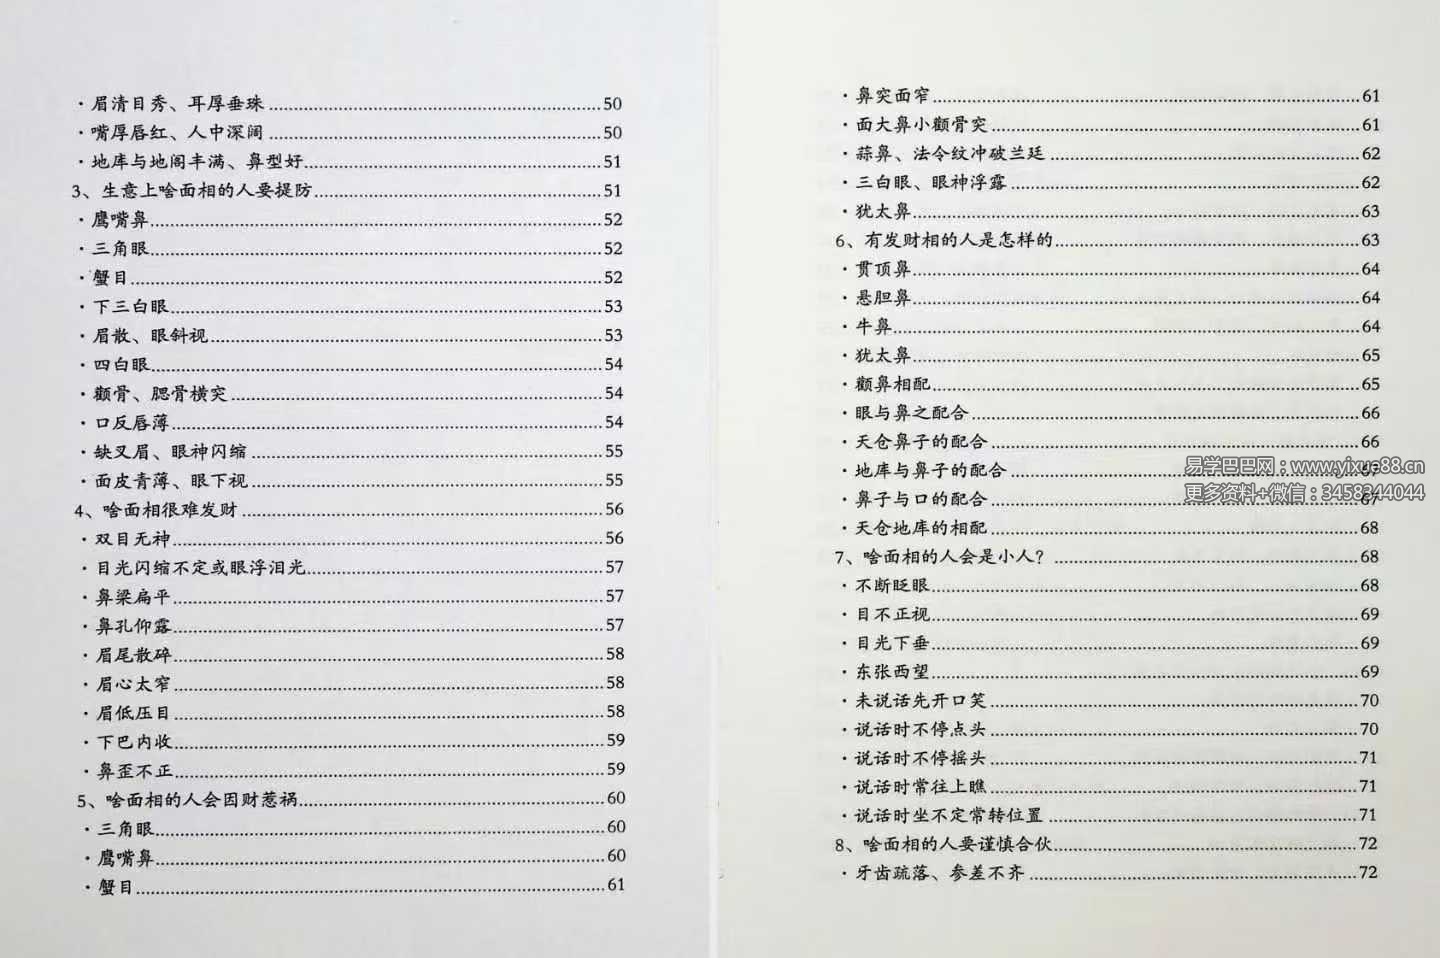 ·眉清目秀、耳厚垂珠......50
·嘴厚唇红、人中深阔......50
·地库与地阁丰满、鼻型好......51
3、生意上啥面相的人要提防......51
·鹰嘴鼻......52
·三角眼......52
·蟹目......52
·下三白眼......53
·眉散、眼斜视......53
·四白眼......54
·颧骨、腮骨横突......54
·口反唇薄......54
·缺叉眉、眼神闪缩......55
·面皮青薄、眼下视......55
4、啥面相很难发财......56
·双目无神......56
·目光闪缩不定或眼浮泪光......57
·鼻梁扁平......57
·鼻孔仰露......57
·眉尾散碎......58
·眉心太窄......58
·眉低压目......58
·下巴内收......59
·鼻歪不正......59
5、啥面相的人会因财惹祸......60
·三角眼......60
·鹰嘴鼻......60
·蟹目......61
·鼻突面窄......61
·面大鼻小颧骨突......61
·蒜鼻、法令纹冲破兰廷......62
·三白眼、眼神浮露......62
·犹太鼻......63
6、有发财相的人是怎样的......63
·贯顶鼻......64
·悬胆鼻......64
·牛鼻......64
·犹太鼻......65
·颧鼻相配......65
·眼与鼻之配合......66
·天仓鼻子的配合......66
·地库与鼻子的配合......67
·鼻子与口的配合......67
·天仓地库的相配......68
7、啥面相的人会是小人？......68
·不断眨眼......68
·目不正视......69
·目光下垂......69
·东张西望......69
·未说话先开口笑......70
·说话时不停点头......70
·说话时不停摇头......71
·说话时常往上瞧......71
·说话时坐不定常转位置......71
8、啥面相的人要谨慎合伙......72
·牙齿疏落、参差不齐......72
易学巴巴网：www.yixue88.cn
更多资料+微信：3458344044